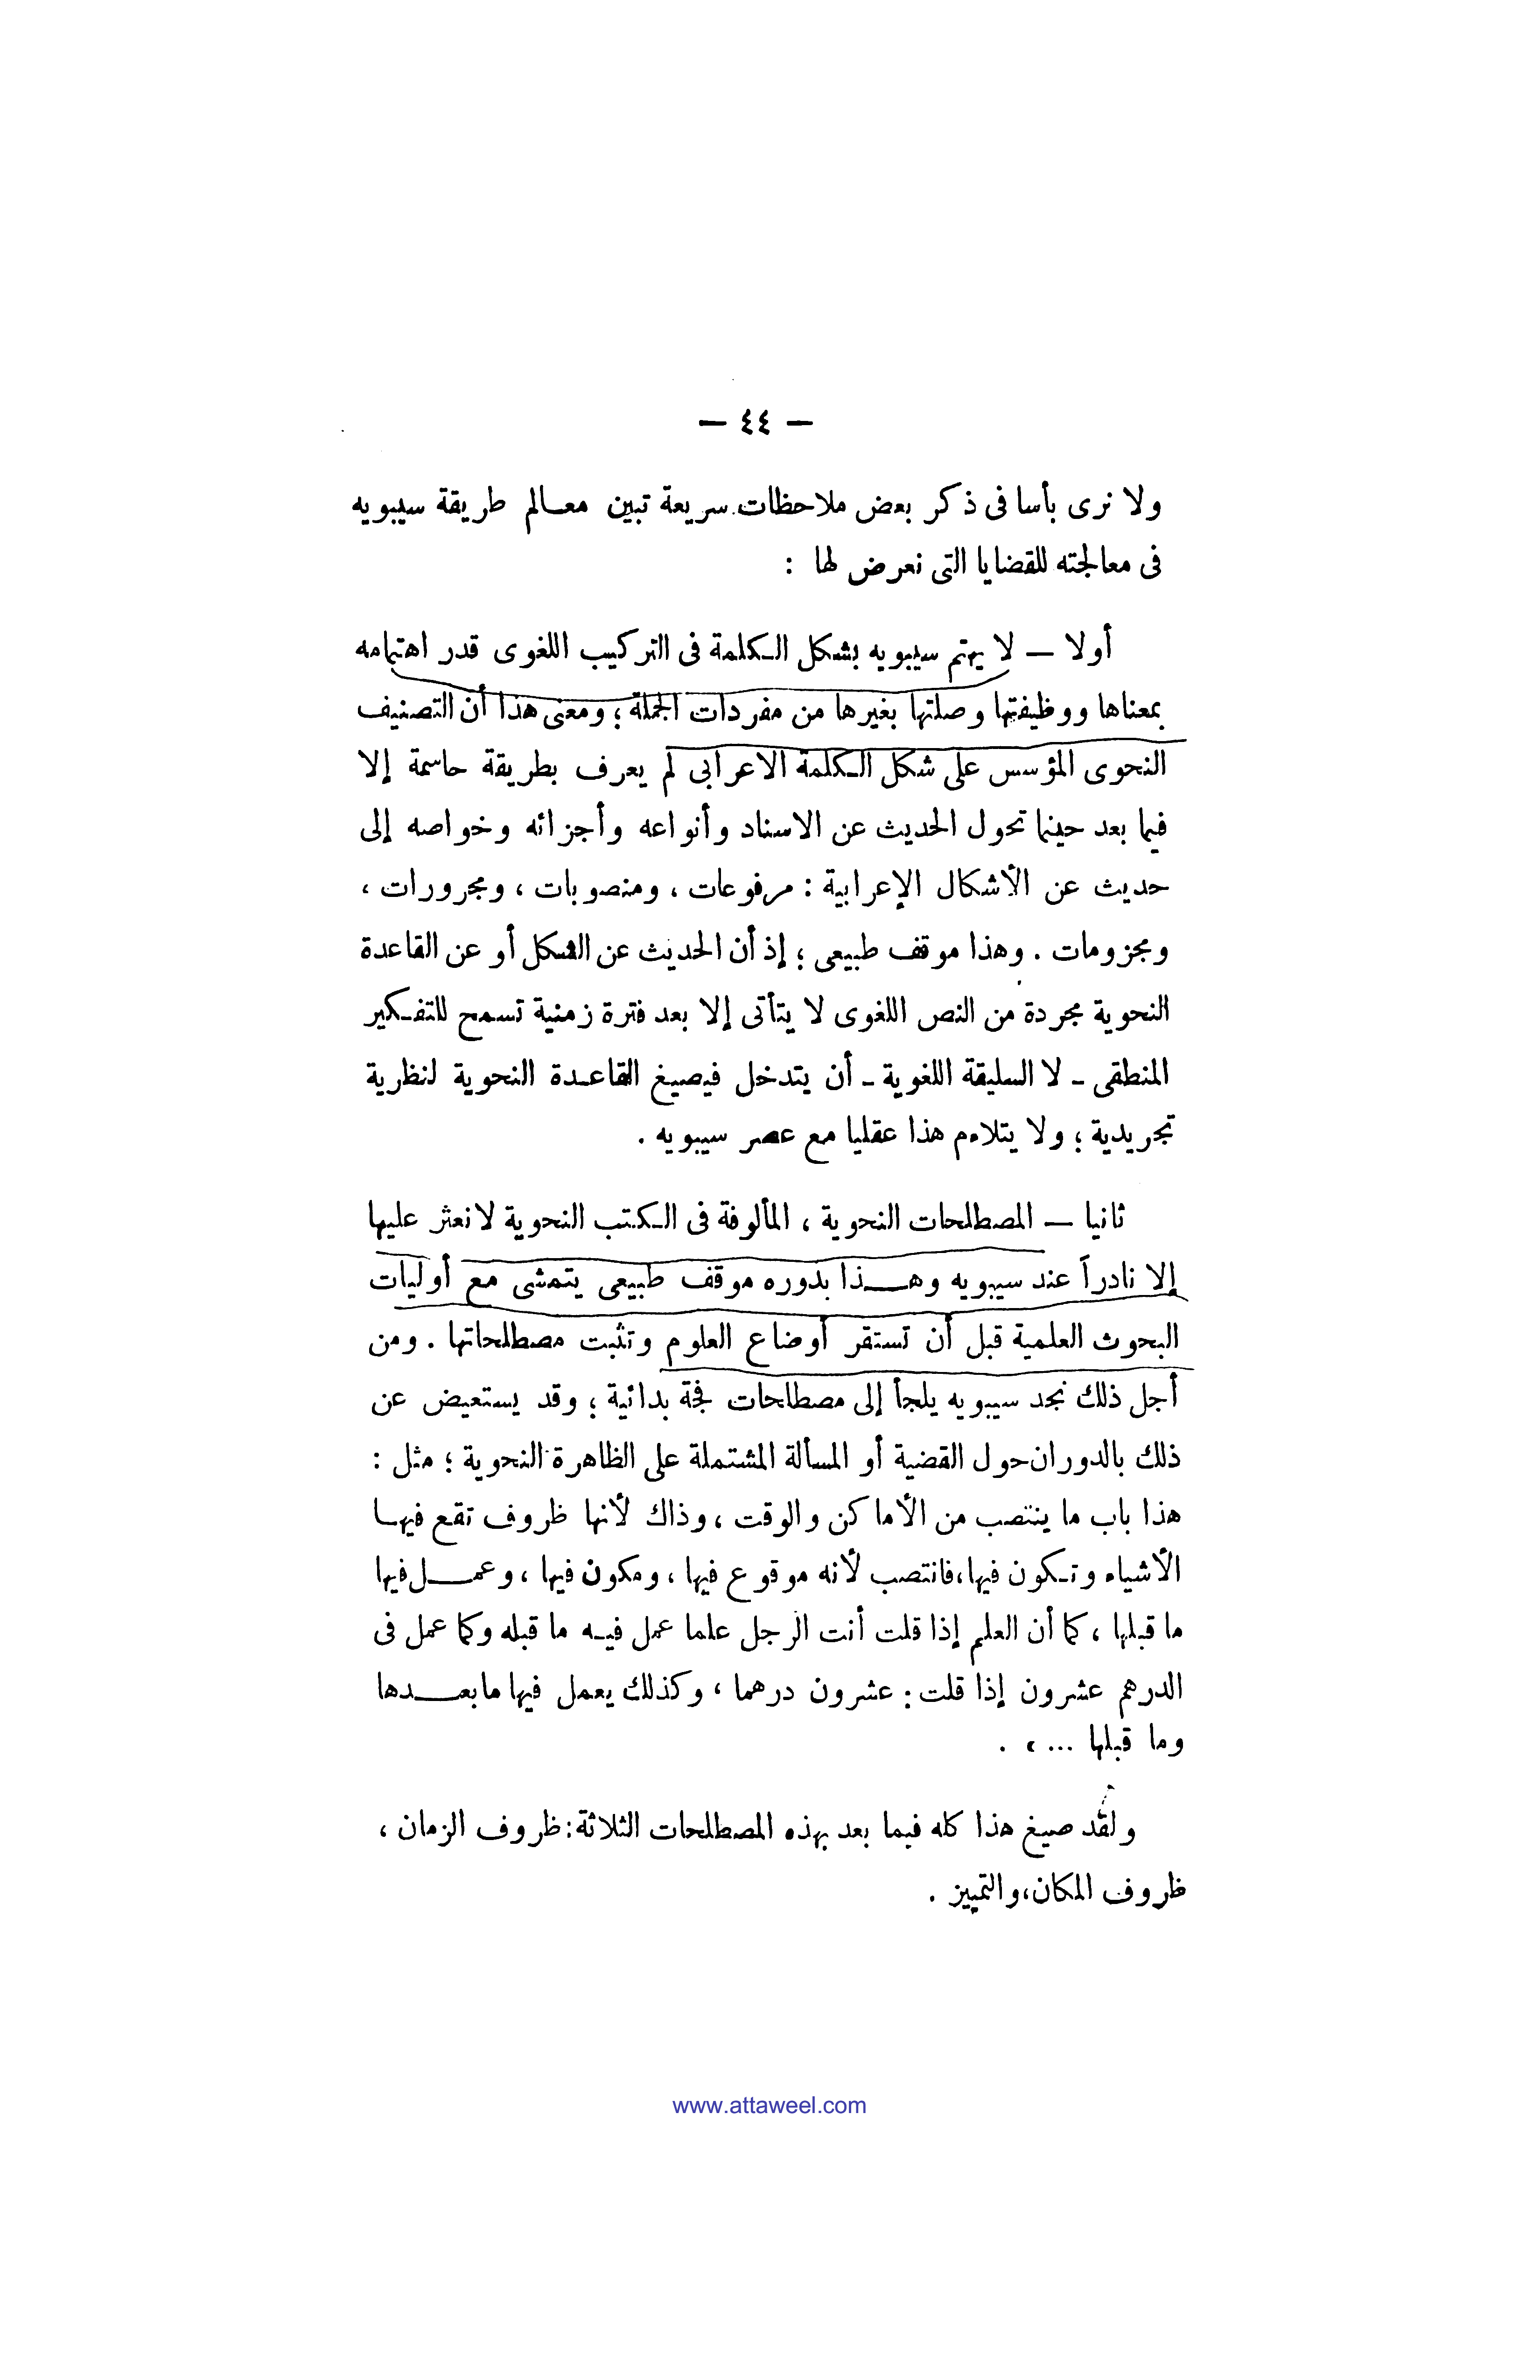 — ٤٤ —
ولا نرى بأسا فى ذكر بعض ملاحظات سريعة تبين معالم طريقة سيبويه
فى معالجته للقضايا التى نعرض لها :
أولا — لا يهتم سيبويه بشكل الكلمة فى التركيب اللغوى قدر اهتمامه
بمعناها ووظيفتها وصلتها بغيرها من مفردات الجملة ؛ ومعنى هذا أن التصنيف
النحوى المؤسس على شكل الكلمة الاعرابى لم يعرف بطريقة حاسمة إلا
فيما بعد حينما تحول الحديث عن الاسناد وأنواعه وأجزائه وخواصه إلى
حديث عن الأشكال الإعرابية : مرفوعات ، ومنصوبات ، ومجرورات ،
ومجزومات . وهذا موقف طبيعى ؛ إذ أن الحديث عن الشكل أو عن القاعدة
النحوية مجردة من النص اللغوى لا يتأتى إلا بعد فترة زمنية تسمح للتفكير
المنطقى - لا السليقة اللغوية - أن يتدخل فيصيغ القاعدة النحوية لنظرية
تجريدية ؛ ولا يتلاءم هذا عقليا مع عصر سيبويه .
ثانيا — المصطلحات النحوية ، المألوفة فى الكتب النحوية لا نعثر عليها
إلا نادراً عند سيبويه وهذا بدوره موقف طبيعى يتمشى مع أوليات
البحوث العلمية قبل أن تستقر أوضاع العلوم وتثبت مصطلحاتها . ومن
أجل ذلك نجد سيبويه يلجأ إلى مصطلحات فجة بدائية ؛ وقد يستعيض عن
ذلك بالدوران حول القضية أو المسألة المشتملة على الظاهرة النحوية ؛ مثل :
هذا باب ما ينتصب من الأماكن والوقت ، وذاك لأنها ظروف تقع فيها
الأشياء وتكون فيها ، فانتصب لأنه موقوع فيها ، ومكون فيها ، وعمل فيها
ما قبلها ، كما أن العلم إذا قلت أنت الرجل علما عمل فيه ما قبله وكما عمل فى
الدرهم عشرون إذا قلت : عشرون درهما ، وكذلك يعمل فيها ما بعدها
وما قبلها ... ، .
ولقد صيغ هذا كله فيما بعد بهذه المصطلحات الثلاثة : ظروف الزمان ،
ظروف المكان ، والتمييز .
www.attaweel.com